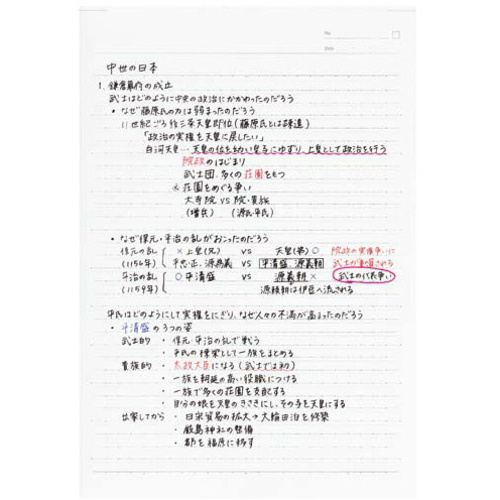 No.
Date
中世の日本
1. 鎌倉幕府の成立
武士はどのように中央の政治にかかわったのだろう
・なぜ藤原氏の力は弱まったのだろう
11世紀ごろ 後三条天皇即位(藤原氏とは疎遠)
「政治の実権を天皇に戻したい」
白河天皇… 天皇の位を幼い皇子にゆずり、上皇として政治を行う
院政のはじまり
武士団、多くの荘園をもつ
☆ 荘園をめぐる争い
大寺院 VS 院・貴族
(僧兵) (源氏・平氏)
・なぜ保元・平治の乱がおこったのだろう
保元の乱 × 上皇(兄) vs 天皇(弟) ○ 院政の実権争いに
(1156年) 平忠正、源為義 vs 平清盛、源義朝 武士が動員される
平治の乱 ○ 平清盛 vs 源義朝 × 武士の代表争い
(1159年) 源頼朝は伊豆へ流される
平氏はどのようにして実権をにぎり、なぜ人々の不満が高まったのだろう
・平清盛の3つの姿
武士的 ・保元・平治の乱で戦う
・平氏の棟梁として一族をまとめる
貴族的 ・太政大臣になる(武士では初)
・一族を朝廷の高い役職につける
・一族で多くの荘園を支配する
・自分の娘を天皇のきさきにし、その子を天皇にする
出家してから ・日宋貿易の拡大→大輪田泊を修築
・厳島神社の整備
・都を福原に移す